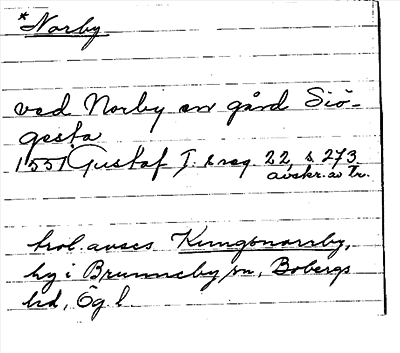 *Norby
ved Norby en gård Siö-
gesta
1551 Gustaf I. s reg. 22, s. 273
avskr. av Tr.
trol. avses Kungsnorrby,
by i Brunneby sn, Bobergs
hd, Ög. l.